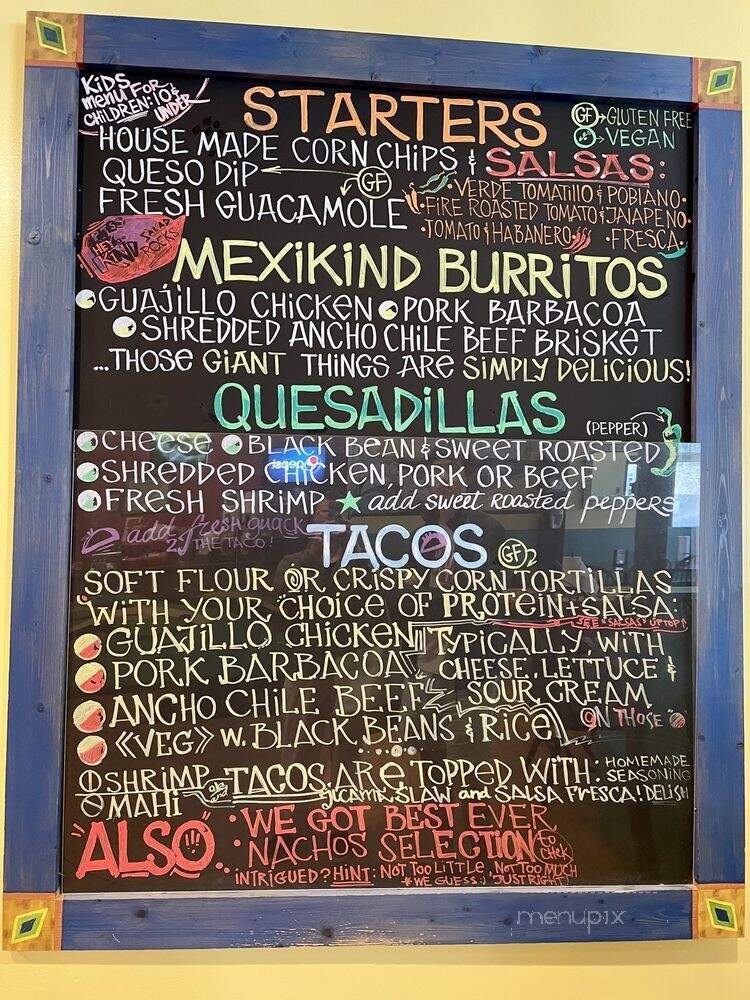 KIDS
MENU FOR
CHILDREN: 10 &
UNDER
STARTERS
GF → GLUTEN FREE
→ VEGAN
HOUSE MADE CORN CHIPS & SALSAS:
QUESO DIP ← GF
FRESH GUACAMOLE
• VERDE TOMATILLO & POBLANO •
• FIRE ROASTED TOMATO & JALAPENO •
• TOMATO & HABANERO • FRESCA •
MEXIKIND BURRITOS
GUAJILLO CHICKEN PORK BARBACOA
SHREDDED ANCHO CHILE BEEF BRISKET
...THOSE GIANT THINGS ARE SIMPLY DELICIOUS!
QUESADILLAS
(PEPPER)
CHEESE BLACK BEAN & SWEET ROASTED
SHREDDED CHICKEN, PORK OR BEEF
FRESH SHRIMP ★ add sweet roasted peppers
add fresh guack
2 THE TACO!
TACOS GF
SOFT FLOUR OR CRISPY CORN TORTILLAS
WITH YOUR CHOICE OF PROTEIN + SALSA:
SEE "SALSAS" UP TOP!
GUAJILLO CHICKEN
PORK BARBACOA
ANCHO CHILE BEEF
《VEG》 W. BLACK BEANS & RICE
TYPICALLY, WITH
CHEESE, LETTUCE &
SOUR CREAM
ON THOSE
SHRIMP
MAHI
TACOS ARE TOPPED WITH: HOMEMADE
SEASONING
JICAMA SLAW and SALSA FRESCA! DELISH
"ALSO"
WE GOT BEST EVER
NACHOS SELECTION to
CHEK
INTRIGUED? HINT: NOT TOO LITTLE, NOT TOO MUCH
*WE GUESS :) JUST RIGHT!
menupix